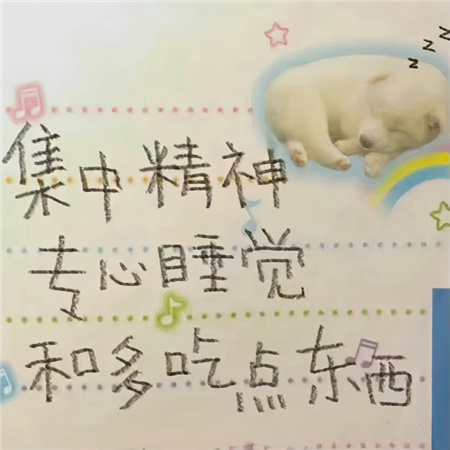 z z z
集中精神
专心睡觉
和多吃点东西